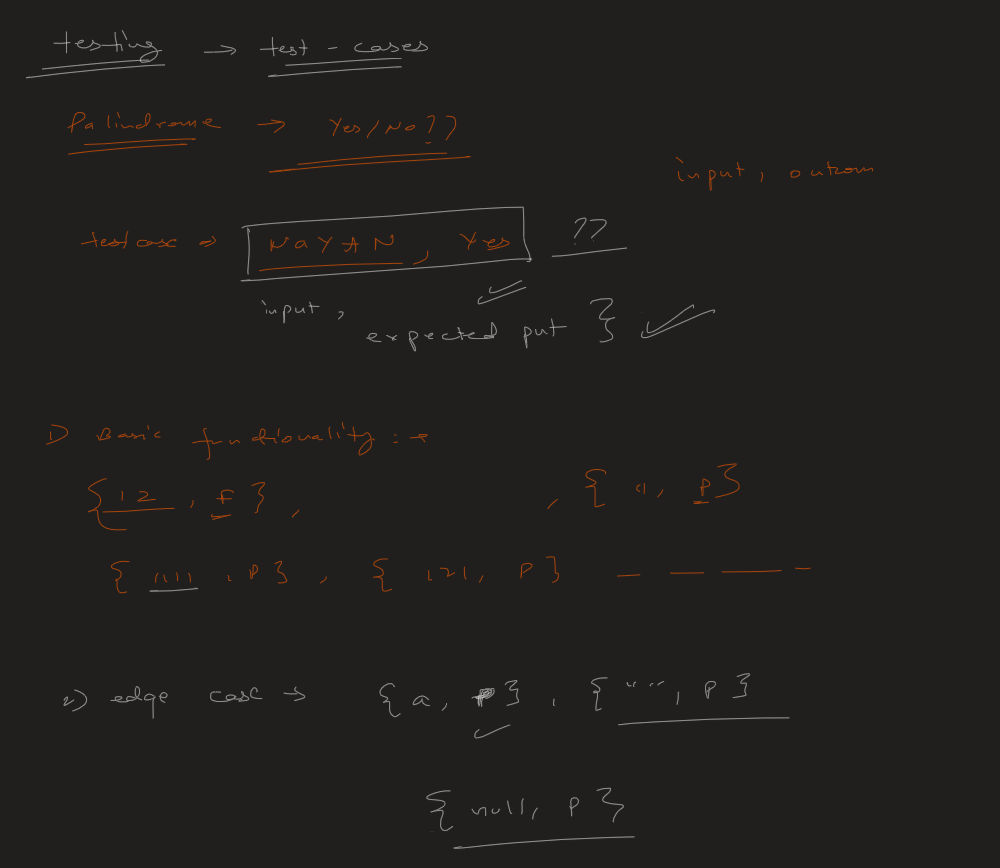 testing → test - cases
Palindrome → Yes/No??
input, outcom
testcase ⇒ NaYAN, Yes ??
input,
expected put }
1) Basic functionality: →
{12, f}, , {11, P}
{1111, P}, {121, P} — — — -
2) edge case → {a, P}, {"", P}
{null, P}